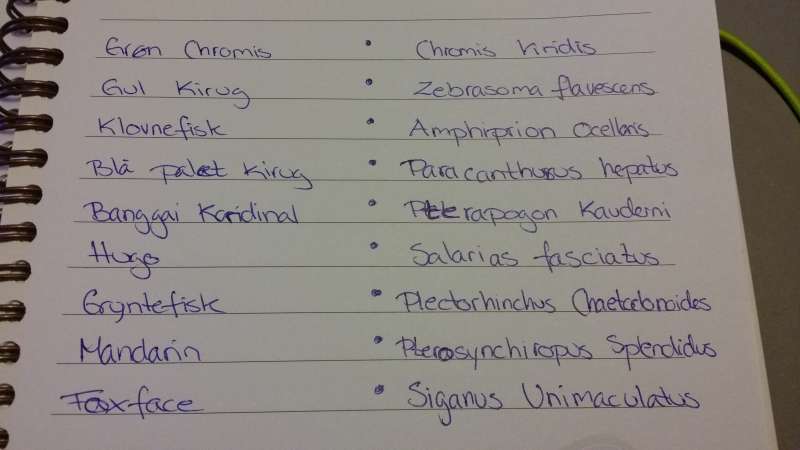 Grøn Chromis • Chromis Viridis
Gul Kirug • Zebrasoma flavescens
Klovnefisk • Amphiprion Ocellaris
Blå palet Kirug • Paracanthurus hepatus
Banggai Kardinal • Pterapogon Kauderni
Hugo • Salarias fasciatus
Gryntefisk • Plectorhinchus Chaetodonoides
Mandarin • Pterosynchiropus Splendidus
Foxface • Siganus Unimaculatus